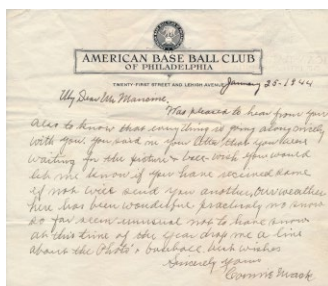 AMERICAN BASE BALL CLUB
OF PHILADELPHIA
TWENTY-FIRST STREET AND LEHIGH AVENUE
January 25-1944
My Dear Mr
Was pleased to hear from you
Also to know that everything is going along nicely
with you. You said in your letter that you were
waiting for the picture & ball. Wish you would
let me know if you have received same
if not will send you another, our weather
here has been wonderful practically no snow
so far seem unusual not to have snow
at this time of the year drop me a line
about the Photo & baseball, best wishes
Sincerely Yours
Connie Mack